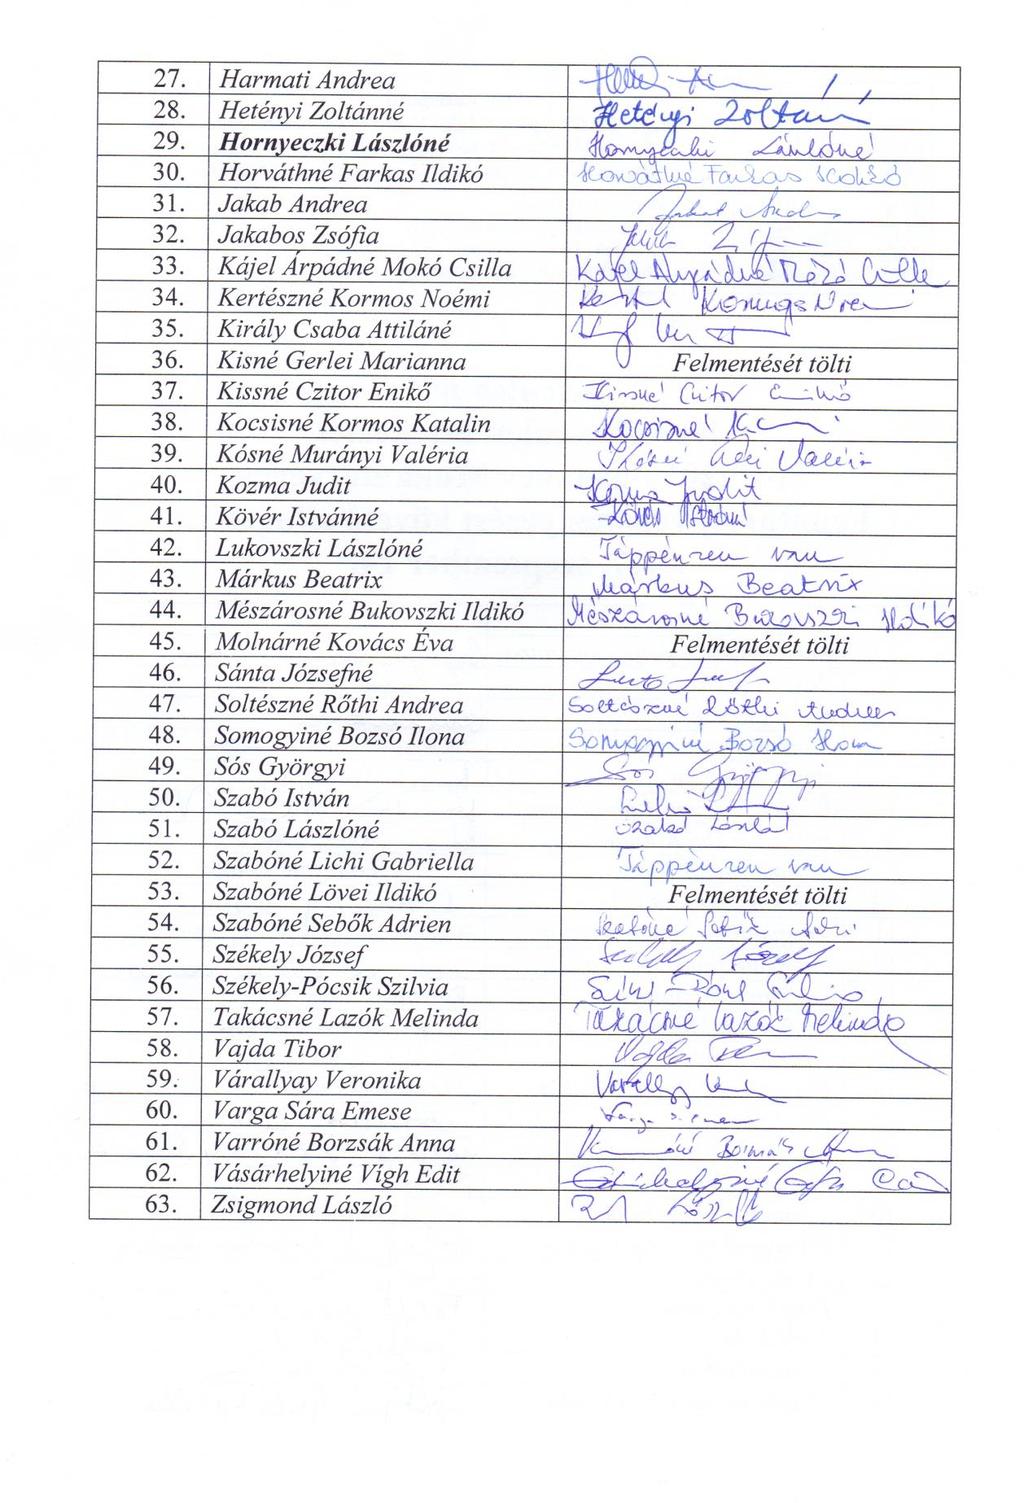 27. Harmati Andrea
28. Hetényi Zoltánné Hetényi Zoltánné
29. Hornyeczki Lászlóné Hornyeczki Lászlóné
30. Horváthné Farkas Ildikó Horváthné Farkas Ildikó
31. Jakab Andrea Jakab Andrea
32. Jakabos Zsófia
33. Kájel Árpádné Mokó Csilla Kájel Árpádné Mokó Csilla
34. Kertészné Kormos Noémi
35. Király Csaba Attiláné
36. Kisné Gerlei Marianna Felmentését tölti
37. Kissné Czitor Enikő Kissné Czitor Enikő
38. Kocsisné Kormos Katalin Kocsisné K.
39. Kósné Murányi Valéria
40. Kozma Judit Kozma Judit
41. Kövér Istvánné Kövér Istvánné
42. Lukovszki Lászlóné Táppénzen van
43. Márkus Beatrix Márkus Beatrix
44. Mészárosné Bukovszki Ildikó Mészárosné Bukovszki Ildikó
45. Molnárné Kovács Éva Felmentését tölti
46. Sánta Józsefné
47. Soltészné Rőthi Andrea Soltészné Rőthi Andrea
48. Somogyiné Bozsó Ilona Somogyiné Bozsó Ilona
49. Sós Györgyi Sós Györgyi
50. Szabó István
51. Szabó Lászlóné Szabó Lászlóné
52. Szabóné Lichi Gabriella Táppénzen van
53. Szabóné Lövei Ildikó Felmentését tölti
54. Szabóné Sebők Adrien Szabóné Sebők Adri
55. Székely József Székely József
56. Székely-Pócsik Szilvia
57. Takácsné Lazók Melinda Takácsné Lazók Melinda
58. Vajda Tibor Vajda
59. Várallyay Veronika
60. Varga Sára Emese Varga
61. Varróné Borzsák Anna
62. Vásárhelyiné Vígh Edit
63. Zsigmond László